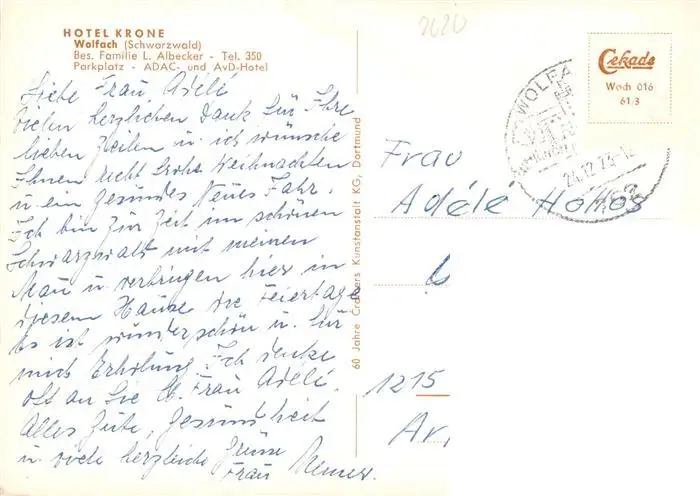 2020
HOTEL KRONE
Wolfach (Schwarzwald)
Bes. Familie L. Albecker - Tel. 350
Parkplatz - ADAC- und AvD-Hotel
Liebe Frau Adélé
vielen herzlichen Dank für Ihre
lieben Zeilen u. ich wünsche
Ihnen recht frohe Weihnachten
u. ein gesundes Neues Jahr.
Ich bin zur Zeit im schönen
Schwarzwald mit meinem
Mann u. verbringen hier in
diesem Hause die Feiertage
Es ist wunderschön u. für
mich Erholung. Ich denke
oft an Sie lb. Frau Adélé.
Alles Gute, Gesundheit
u. viele herzliche Grüsse
Frau
60 Jahre Cramers Kunstanstalt KG, Dortmund
Cekade
Woch 016
61/3
WOLFA
24.12.73-1
Frau
Adélé Hollos
1215
Ar,